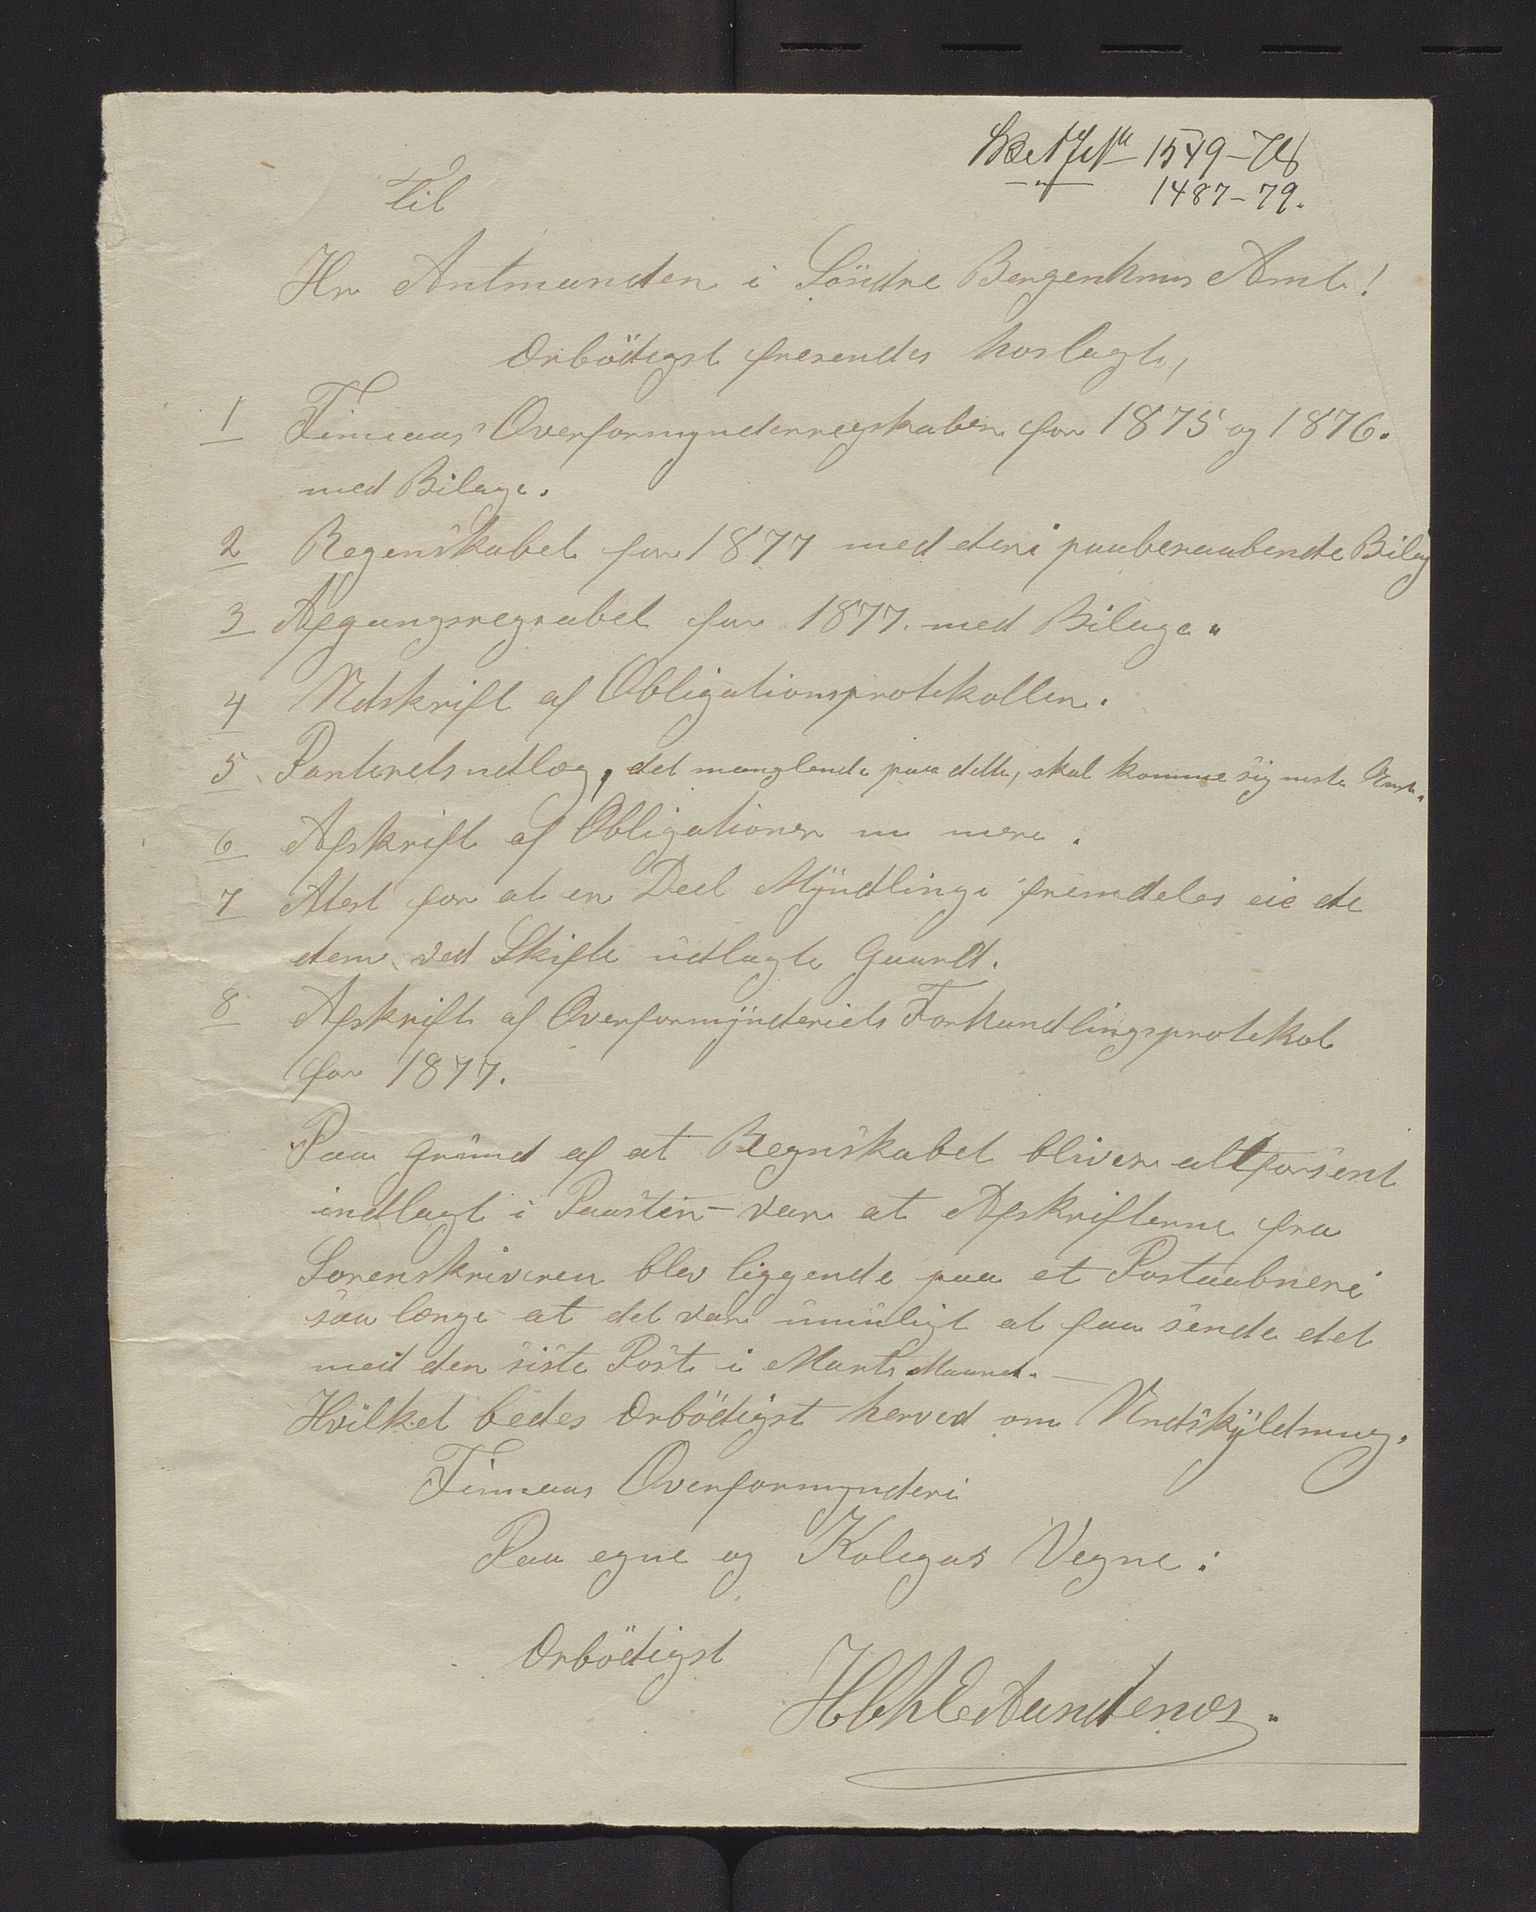 1579-78
1487-79.
Til
Hr Amtmanden i Søndre Bergenhus Amt!
Ærbödigst fresendes hoslagt,
1 Finnaas Overformynderregskaber for 1875 og 1876.
med Bilage.
2 Regenskabet for 1877 med deri paaberaabende Bilag
3 Afgangsregnabet for 1877. med Bilage.
4 Udskrift af Obligationsprotokollen.
5 Panteretsudlæg, det manglende paa dette, skal komme sig neste
6 Afskrift af Obligationer nu mere.
7 Atest for at en Deel Myndlinge fremdeles eie de
dem ved Skifte udlagte Gaard.
8 Afskrift af Overformynderiets Forhandlingsprotokol
for 1877.
Paa Grund af at Regnskabet bliver altforsent
indlagt i Posten – var at Afskrifterne fra
Sorenskriveren blev liggende paa et Postaabneri
saa længe at det var umuligt at faa sende det
med den siste Post i Marts Maaned. —
Hvilket bedes Ærbödigst herved om Undskyldning.
Finnaas Overformynderi
Paa egne og Kolegas Vegne:
Ærbödigst